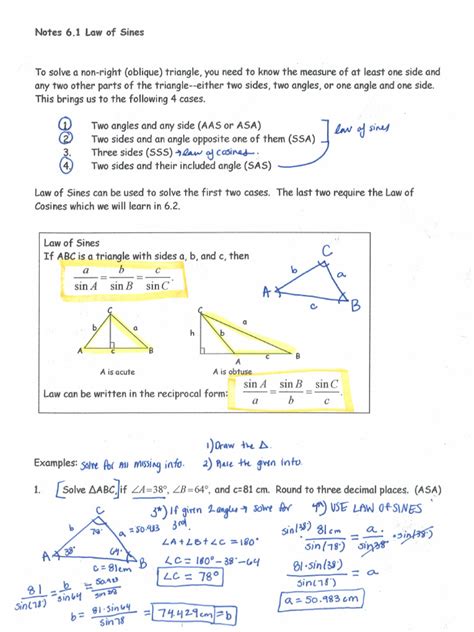 Notes 6.1 Law of Sines
To solve a non-right (oblique) triangle, you need to know the measure of at least one side and
any two other parts of the triangle--either two sides, two angles, or one angle and one side.
This brings us to the following 4 cases.
1 Two angles and any side (AAS or ASA)
2 Two sides and an angle opposite one of them (SSA)
law of sines
3. Three sides (SSS) → law of cosines.
4. Two sides and their included angle (SAS)
Law of Sines can be used to solve the first two cases. The last two require the Law of
Cosines which we will learn in 6.2.
Law of Sines
If ABC is a triangle with sides a, b, and c, then
a/sin A = b/sin B = c/sin C.
C
b a
A B
c
C
b a
A c B
A is acute
C
a
h b
A c B
A is obtuse
Law can be written in the reciprocal form: sin A/a = sin B/b = sin C/c
1) Draw the Δ.
Examples: Solve for all missing info. 2) Place the given info
1. [Solve ΔABC,] if ∠A=38°, ∠B=64°, and c=81 cm. Round to three decimal places. (ASA)
3*) If given 2 angles → solve for 3rd.
4*) USE LAW OF SINES
C
b 78° a = 50.983
A 38° 64° B
c = 81cm
∠A+∠B+∠C = 180°
∠C = 180° - 38° - 64
∠C = 78°
sin(38°) · 81cm / sin(78°) = a / sin 38° · sin(38°)
81·sin(38°) / sin(78°) = a
a = 50.983 cm
81 / sin(78°) = b / sin 64
b = 81·sin64 / sin78 = 74.429cm = b